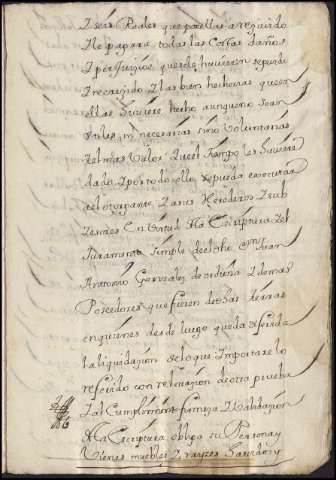 Y seis Reales que por ellas a resevido
Y le pagara todas las Costas daños
Y perjuizios que se le huvieren seguido
Y recresido Y las bien hechurias que en
ellas huviere hecho aunque no sean
utiles ni necesarias sino voluntarias
Y el mas valor que el tiempo les huviere
dado Y por todo ello se pueda executar
al otorgante Y a sus Herederos Y sub
sesores en virtud de esta escriptura Y el
Juramento simple del dho Juan
Antonio Gonzalez de ordeña Y demas
Poseedores que fueren de las tierras
en quienes desde luego queda diferida
la liquidazion de lo que importare lo
referido con relevazion de otra prueba
Y al Cumplimiento firmeza Y Validazion
desta escriptura obliga su Persona y
Vienes muebles Y rayzes havidos y